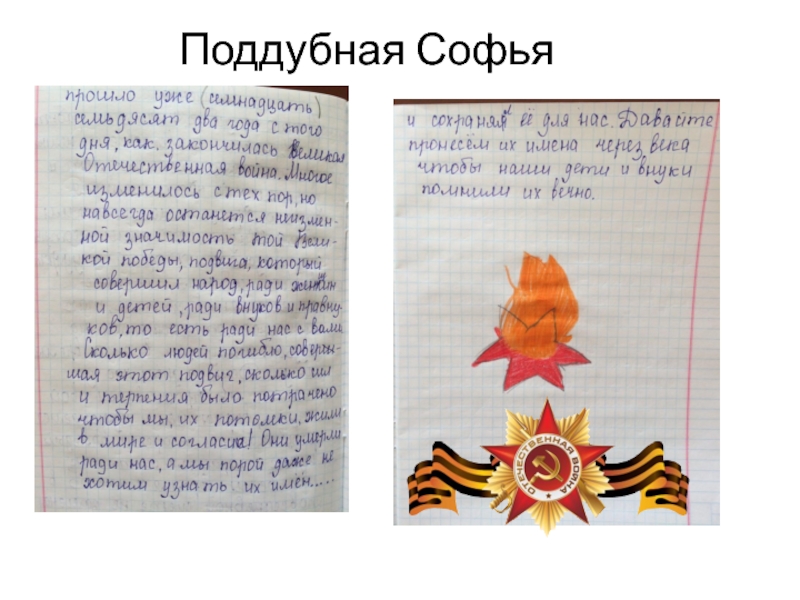 Поддубная Софья
прошло уже (семнадцать)
семьдесят два года с того
дня, как закончилась Великая
Отечественная война. Многое
изменилось с тех пор, но
навсегда останется неизмен-
ной значимость той Вели-
кой победы, подвига, который
совершил народ, ради жизни
и детей, ради внуков и правну-
ков, то есть ради нас с вами.
Сколько людей погибло, соверш-
шая этот подвиг, сколько сил
и терпения было потрачено
чтобы мы, их потомки, жили
в мире и согласии! Они умерли
ради нас, а мы порой даже не
хотим узнать их имён.....
и сохраняя её для нас. Давайте
пронесём их имена через века
чтобы наши дети и внуки
помнили их вечно.
ОТЕЧЕСТВЕННАЯ ВОЙНА